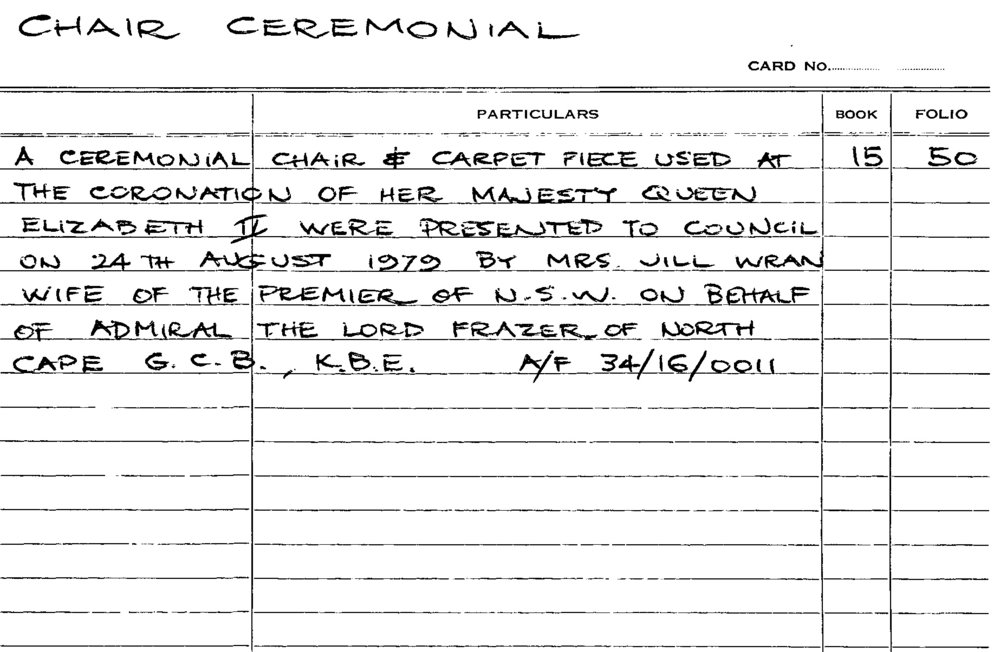 CHAIR CEREMONIAL
CARD NO.
PARTICULARS BOOK FOLIO
A CEREMONIAL CHAIR & CARPET PIECE USED AT 15 50
THE CORONATION OF HER MAJESTY QUEEN
ELIZABETH II WERE PRESENTED TO COUNCIL
ON 24TH AUGUST 1979 BY MRS. JILL WRAN
WIFE OF THE PREMIER OF N.S.W. ON BEHALF
OF ADMIRAL THE LORD FRAZER OF NORTH
CAPE G.C.B., K.B.E. A/F 34/16/0011